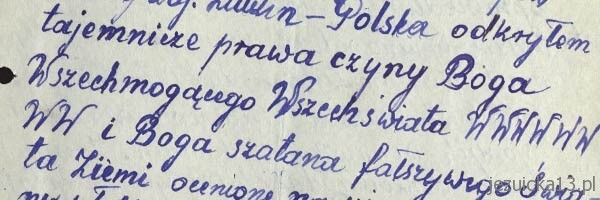 woj. Lublin – Polska odkryłem
tajemnicze prawa czyny Boga
Wszechmogącego Wszechświata WWWWW
WW i Boga szatana fałszywego Świa-
ta Ziemi ocenione
jezuicka13.pl